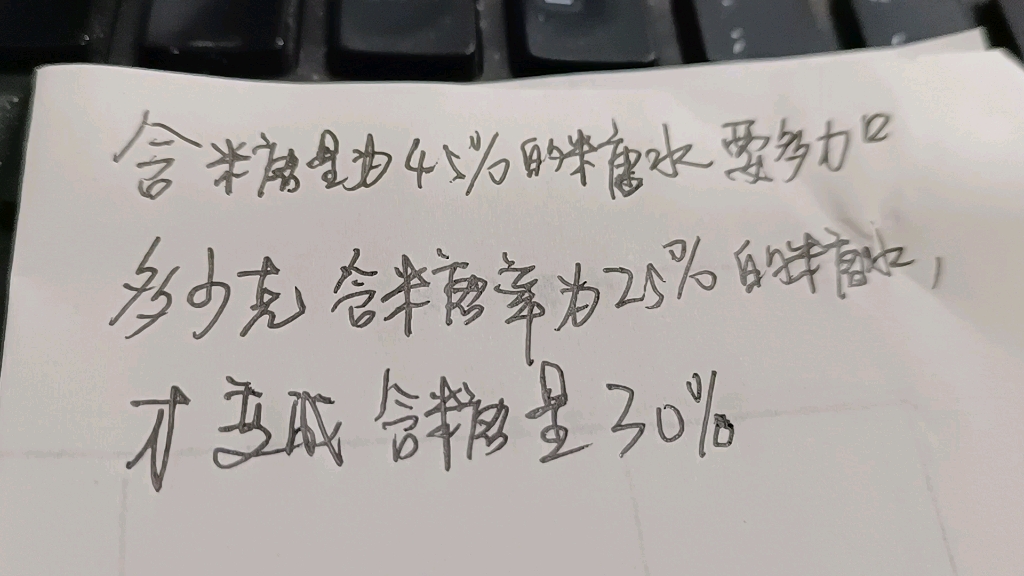 含糖量为45%的糖水要多加
多少克含糖率为25%的糖水,
才变成含糖量30%